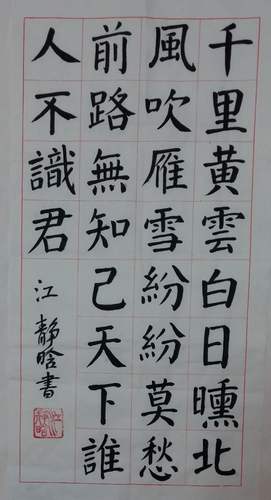 千里黃雲白日曛北
風吹雁雪紛紛莫愁
前路無知己天下誰
人不識君
江靜晗書